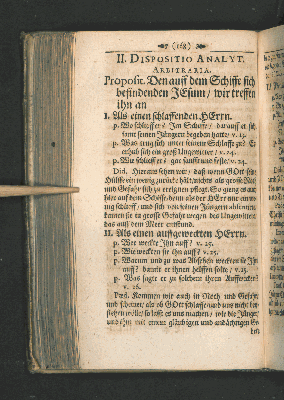 (168)
II. DISPOSITIO ANALYT.
ARBITRARIA.
Proposit. Den auff dem Schiffe sich
befindenden JEsum / wir treffen
ihn an
I. Als einen schlaffenden HErrn.
p. Wo schlieff er? Im Schiffe / darauf er sich
samt seinen Jüngern begeben hatte v. 23.
p. Was trug sich unter seinem Schlaffe zu? Es
erhub sich ein groß Ungewitter / v. 24.
p. Wie schlieff er? gar sanffte und feste / v. 24.
Did. Hieraus sehen wir / daß wenn GOtt sein
Hülffe ein wenig zurücke hält / nichts als große Noht
und Gefahr sich zu ereignen pflegt. So gieng es auch
hier auff dem Schiffe / denn als der HErr nur ein we-
nig schlieff / und sich von seinen Jüngern
kamen sie in grosse Gefahr wegen des Ungewitters
das auff dem Meer entstund.
II. Als einen auffgeweckten HErrn.
p. Wer weckte Jhn auff? v. 25.
p. Wie weckten sie ihn auff? v. 25.
p. Warum und zu was Absehen weckten sie Jhn
auff? damit er ihnen helffen solte / v. 25.
p. Was sagte er zu solchem ihren Auffwecken?
v. 26.
Kommen wir auch in Noth und Gefahr
und scheinet / als ob GOtt schlaffe und uns nicht bey-
stehen wolle / so last es uns machen / wie die Jünger /
und ihn mit einem gläubigen und andächtigen Ge-
bet